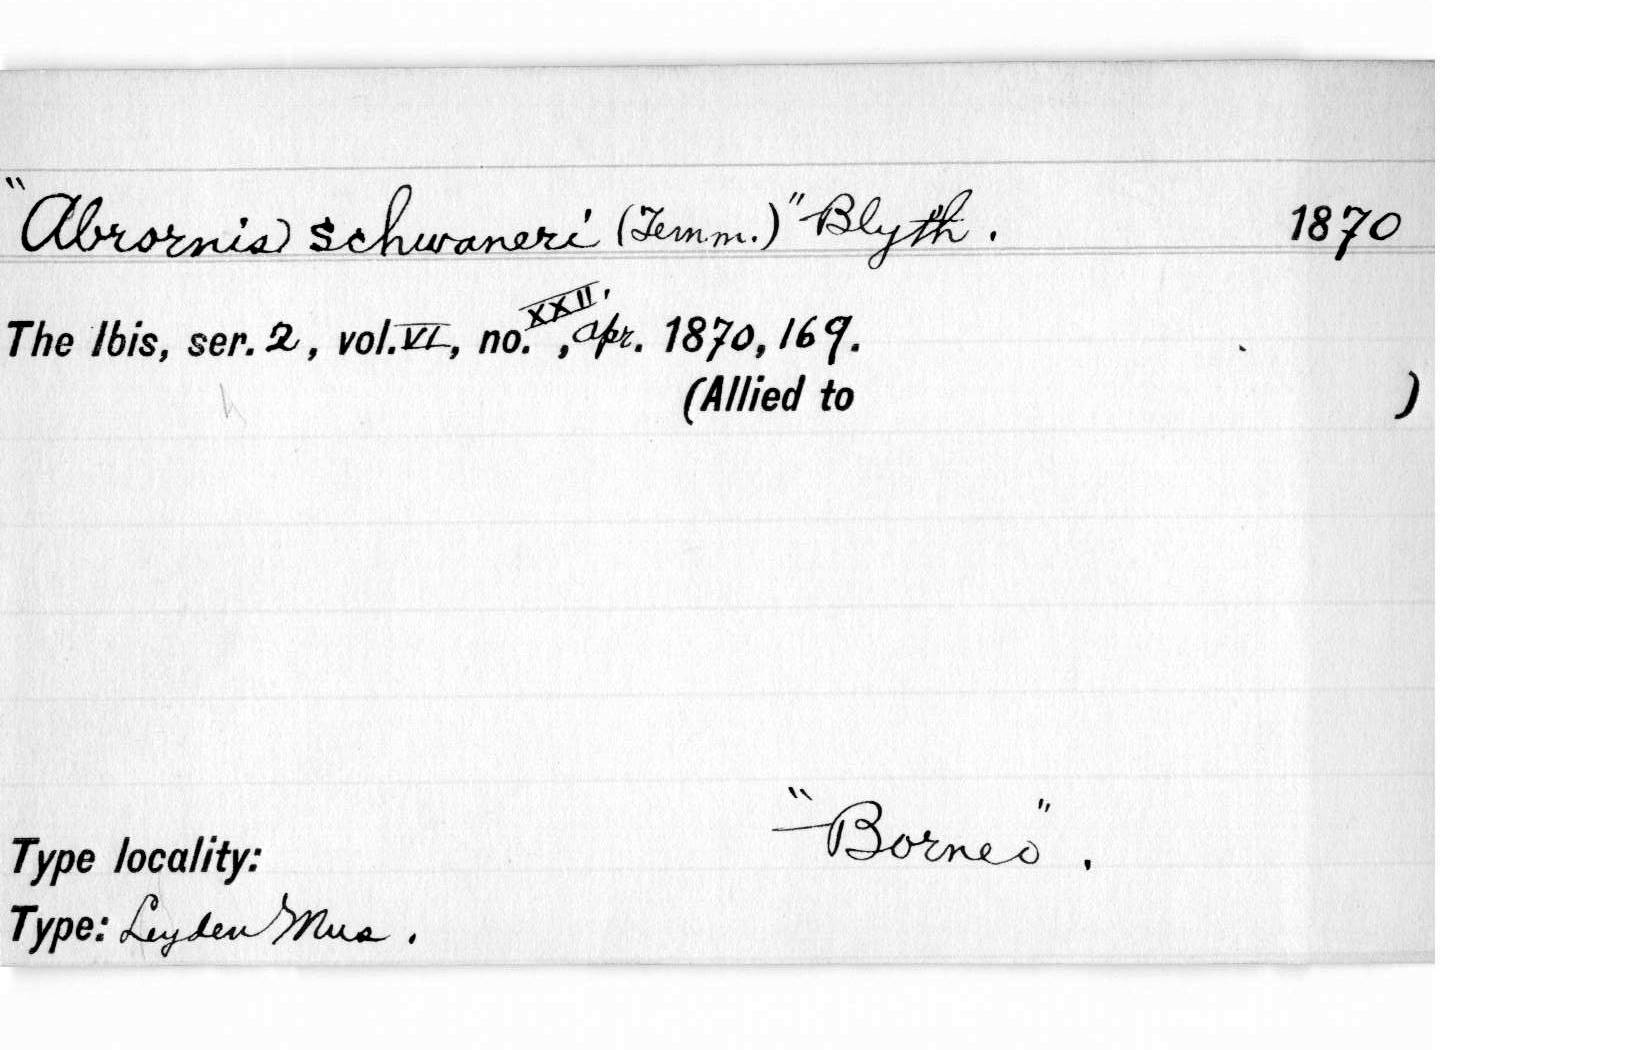 "Abrornis schwaneri (Temm.)" Blyth. 1870
The Ibis, ser. 2, vol. VI, no. XXII, Apr. 1870, 169.
(Allied to )
Type locality: "Borneo".
Type: Leyden Mus.